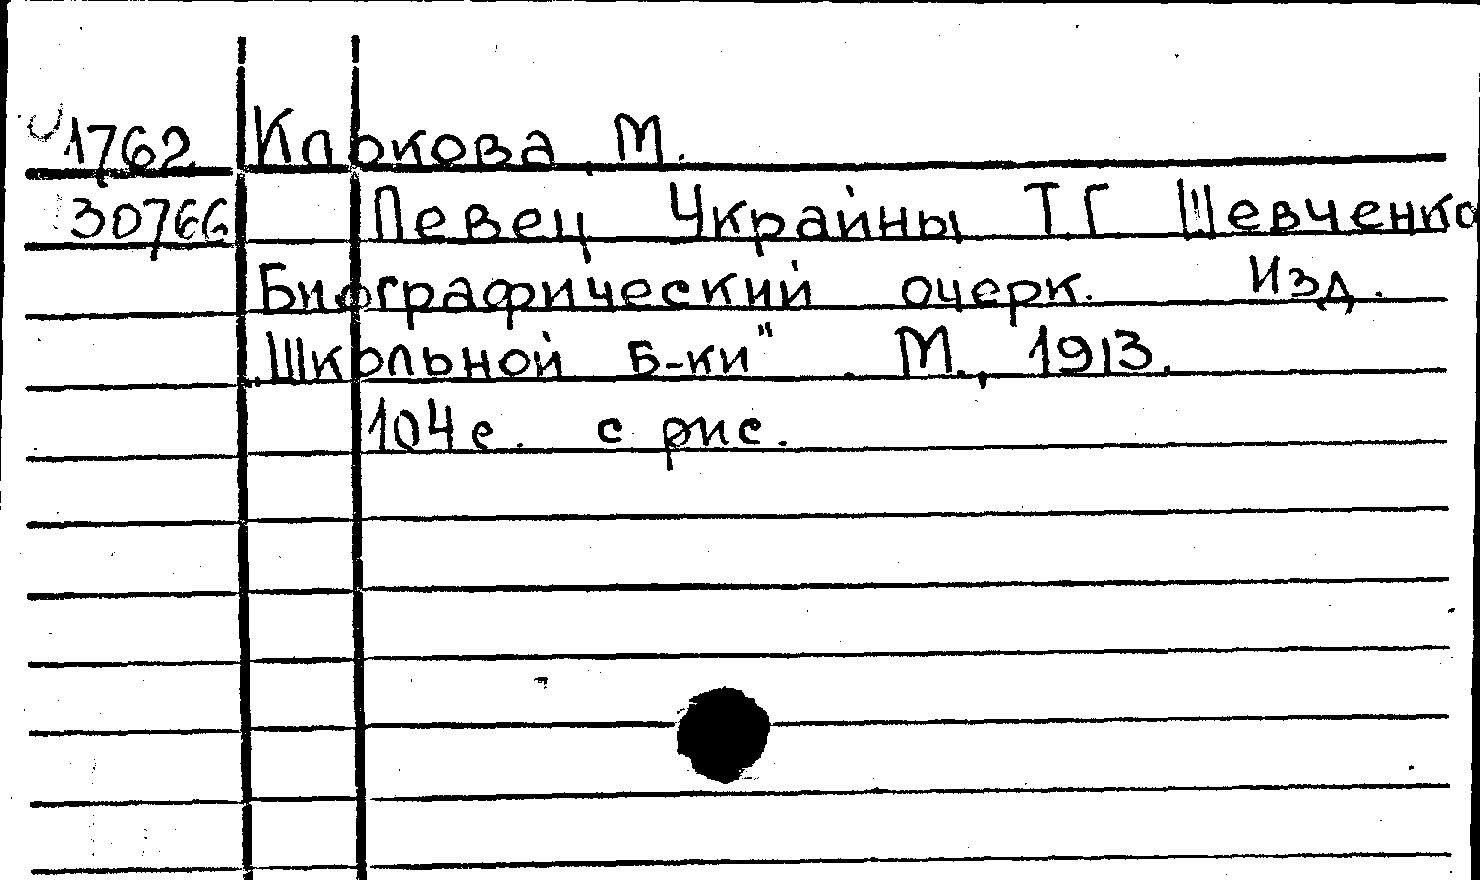 1762 Клокова М.
30766 Певец Украйны Т.Г Шевченко
Биографический очерк. Изд.
"Школьной Б-ки". М., 1913.
104 с. с рис.